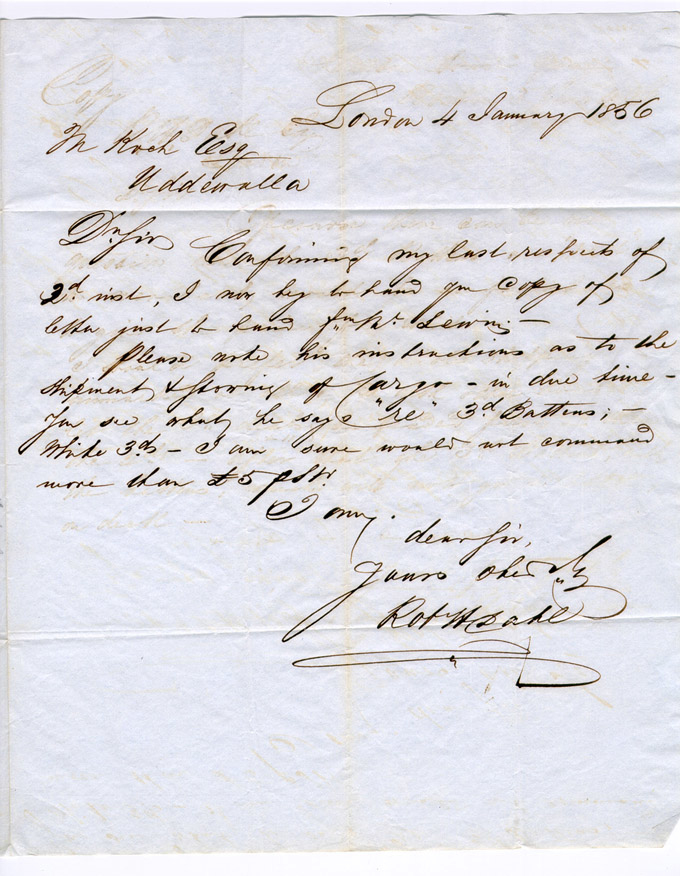 London 4 January 1856
M Koch Esq
Uddewalla
Dr Sir Confirming my last respects of
2d inst, I now beg to hand you Copy of
letter just to hand fm Mr. Lewin –
Please note his instructions as to the
Shipment & Stowing of Cargo – in due time –
You see what he says "re" 3d Battens; –
White 3ds – I am sure would not command
more than £5 pStd
I am,
dear Sir,
Yours
Robt H Dahl
Copy